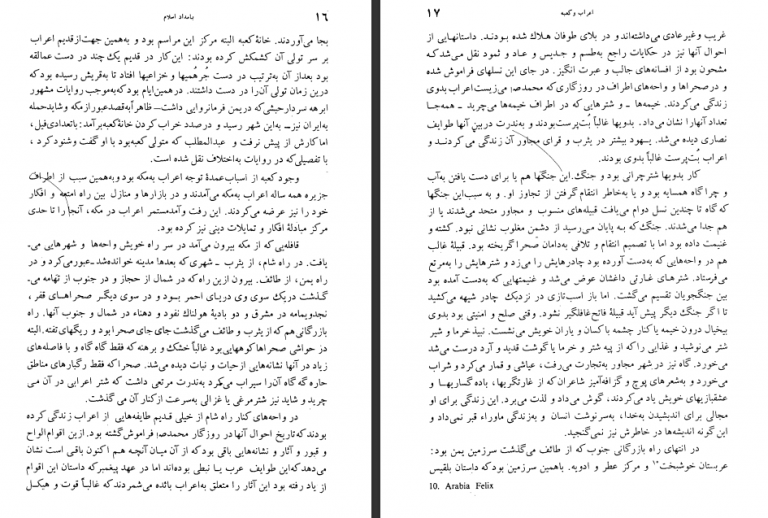 ۱۶ بامداد اسلام
بجا می‌آوردند. خانهٔ کعبه البته مرکز این مراسم بود و به‌همین جهت از قدیم اعراب
بر سر تولی آن کشمکش کرده بودند: این کار در قدیم یک چند در دست عمالقه
بود بعد از آن به‌ترتیب در دست جُرهُمیها و خزاعیها افتاد تا به‌قریش رسیده بود که
درین زمان تولی آن را در دست داشتند. در همین ایام بود که به‌موجب روایات مشهور
ابرهه سردار حبشی که در یمن فرمانروایی داشت – ظاهراً به‌قصد عبور از مکه و شاید حمله
به‌ایران نیز – به‌این شهر رسید و در صدد خراب کردن خانهٔ کعبه برآمد: با تعدادی فیل،
اما کارش از پیش نرفت و عبدالمطلب که متولی کعبه بود با او گفت و شنود کرد،
با تفصیلی که در روایات به‌اختلاف نقل شده است.
وجود کعبه از اسباب عمدهٔ توجه اعراب به‌مکه بود و به‌همین سبب از اطراف
جزیره همه ساله اعراب به‌مکه می‌آمدند و در بازارها و منازل بین راه امتعه و افکار
خود را نیز عرضه می‌کردند. این رفت و آمد مستمر اعراب در مکه، آنجا را تا حدی
مرکز مبادلهٔ افکار و تمایلات دینی نیز کرده بود.
قافله‌یی که از مکه بیرون می‌آمد در سر راه خویش واحه‌ها و شهرهایی می‌-
یافت. در راه شام، از یثرب – شهری که بعدها مدینه خوانده شد – عبور می‌کرد و در
راه یمن، از طائف. بیرون ازین راه که در شمال از حجاز و در جنوب از تهامه می‌-
گذشت در یک سوی وی دریای احمر بود و در سوی دیگر صحراهای قفر،
نجد و یمامه در مشرق و دو بادیهٔ هولناک نفود و دهناء در شمال و جنوب آنها. راه
بازرگانی هم که از یثرب و طائف می‌گذشت جای جای صحرا بود و ریگهای تفته. البته
در حواشی صحراها کوههایی بود غالباً خشک و برهنه که فقط گاه گاه و با فاصله‌های
زیاد در آنها نشانه‌هایی از حیات و نبات دیده می‌شد. صحرا که فقط رگبارهای مناطق
حاره گه گاه آن را سیراب می‌کرد به‌ندرت مرتعی داشت که شتر اعرابی در آن می‌-
چرید و شاید نیز شترمرغی یا غزالی به‌سرعت از کنار آن می‌گذشت.
در واحه‌های کنار راه شام از خیلی قدیم طایفه‌هایی از اعراب زندگی کرده
بودند که تاریخ احوال آنها در روزگار محمد(ص) فراموش گشته بود. ازین اقوام الواح
و قبور و آثار و نشانه‌هایی باقی بود که از آن میان آنچه هم اکنون باقی است نشان
می‌دهد که این طوایف عرب یا نبطی بوده‌اند اما در عهد پیغمبر که داستان این اقوام
از یاد رفته بود این آثار را متعلق به‌اعراب بائده می‌شمردند که غالباً قوت و هیکل
اعراب و کعبه ۱۷
غریب و غیرعادی می‌داشته‌اند و در بلای طوفان هلاک شده بودند. داستانهایی از
احوال آنها نیز در حکایات راجع به‌طسم و جدیس و عاد و ثمود نقل می‌شد که
مشحون بود از افسانه‌های جالب و عبرت انگیز. در جای این نسلهای فراموش شده
و در صحراها و واحه‌های اطراف در روزگاری که محمد(ص) می‌زیست اعراب بدوی
زندگی می‌کردند. خیمه‌ها – و شترهایی که در اطراف خیمه‌ها می‌چرید – همه‌جا
تعداد آنها را نشان می‌داد. بدویها غالباً بُت‌پرست بودند و به‌ندرت در بین آنها طوایف
نصاری دیده می‌شد. یهود بیشتر در یثرب و قرای مجاور آن زندگی می‌کردند و
اعراب بُت‌پرست غالباً بدوی بودند.
کار بدویها شترچرانی بود و جنگ. این جنگها هم یا برای دست یافتن به‌آب
و چراگاه همسایه بود و یا به‌خاطر انتقام گرفتن از تجاوز او. و به سبب این جنگها
که گاه تا چندین نسل دوام می‌یافت قبیله‌های منسوب و مجاور متحد می‌شدند یا از
هم جدا می‌شدند. جنگ که به پایان می‌رسید از دشمن مغلوب نشانی نبود. کشته و
غنیمت داده بود اما با تصمیم انتقام و تلافی به‌دامان صحرا گریخته بود. قبیلهٔ غالب
هم در واحه‌هایی که به‌دست آورده بود چادرهایش را می‌زد و شترهایش را به‌مرتع
می‌فرستاد. شترهای غارتی داغشان عوض می‌شد و غنیمتهایی که به‌دست آمده بود
بین جنگجویان تقسیم می‌گشت. اما باز اسب‌تازی در نزدیک چادر شیهه می‌کشید
تا اگر جنگ دیگر پیش آید قبیلهٔ فاتح غافلگیر نشود. وقتی صلح و امنیتی بود بدوی
بیخیال درون خیمه یا کنار چشمه با کسان و یاران خویش می‌نشست. نبیذ خرما و شیر
شتر می‌نوشید و غذایی را که از پیه شتر و خرما یا گوشت قدید و آرد درست می‌شد
می‌خورد. گاه نیز در شهر مجاور به‌تجارت می‌رفت، عیاشی و قمار می‌کرد و شراب
می‌خورد و به‌شعرهای پوچ و گزافه‌آمیز شاعران که از غارتگریها، باده‌گساریها و
عشقبازیهای خویش یاد می‌کردند، گوش می‌داد و لذت می‌برد. این زندگی برای او
مجالی برای اندیشیدن به‌خدا، به‌سرنوشت انسان و به‌زندگی ماوراء قبر نمی‌داد و
این گونه اندیشه‌ها در خاطرش نیز نمی‌گنجید.
در انتهای راه بازرگانی جنوب که از طائف می‌گذشت سرزمین یمن بود:
عربستان خوشبخت۱۰ و مرکز عطر و ادویه. با همین سرزمین بود که داستان بلقیس
10. Arabia Felix